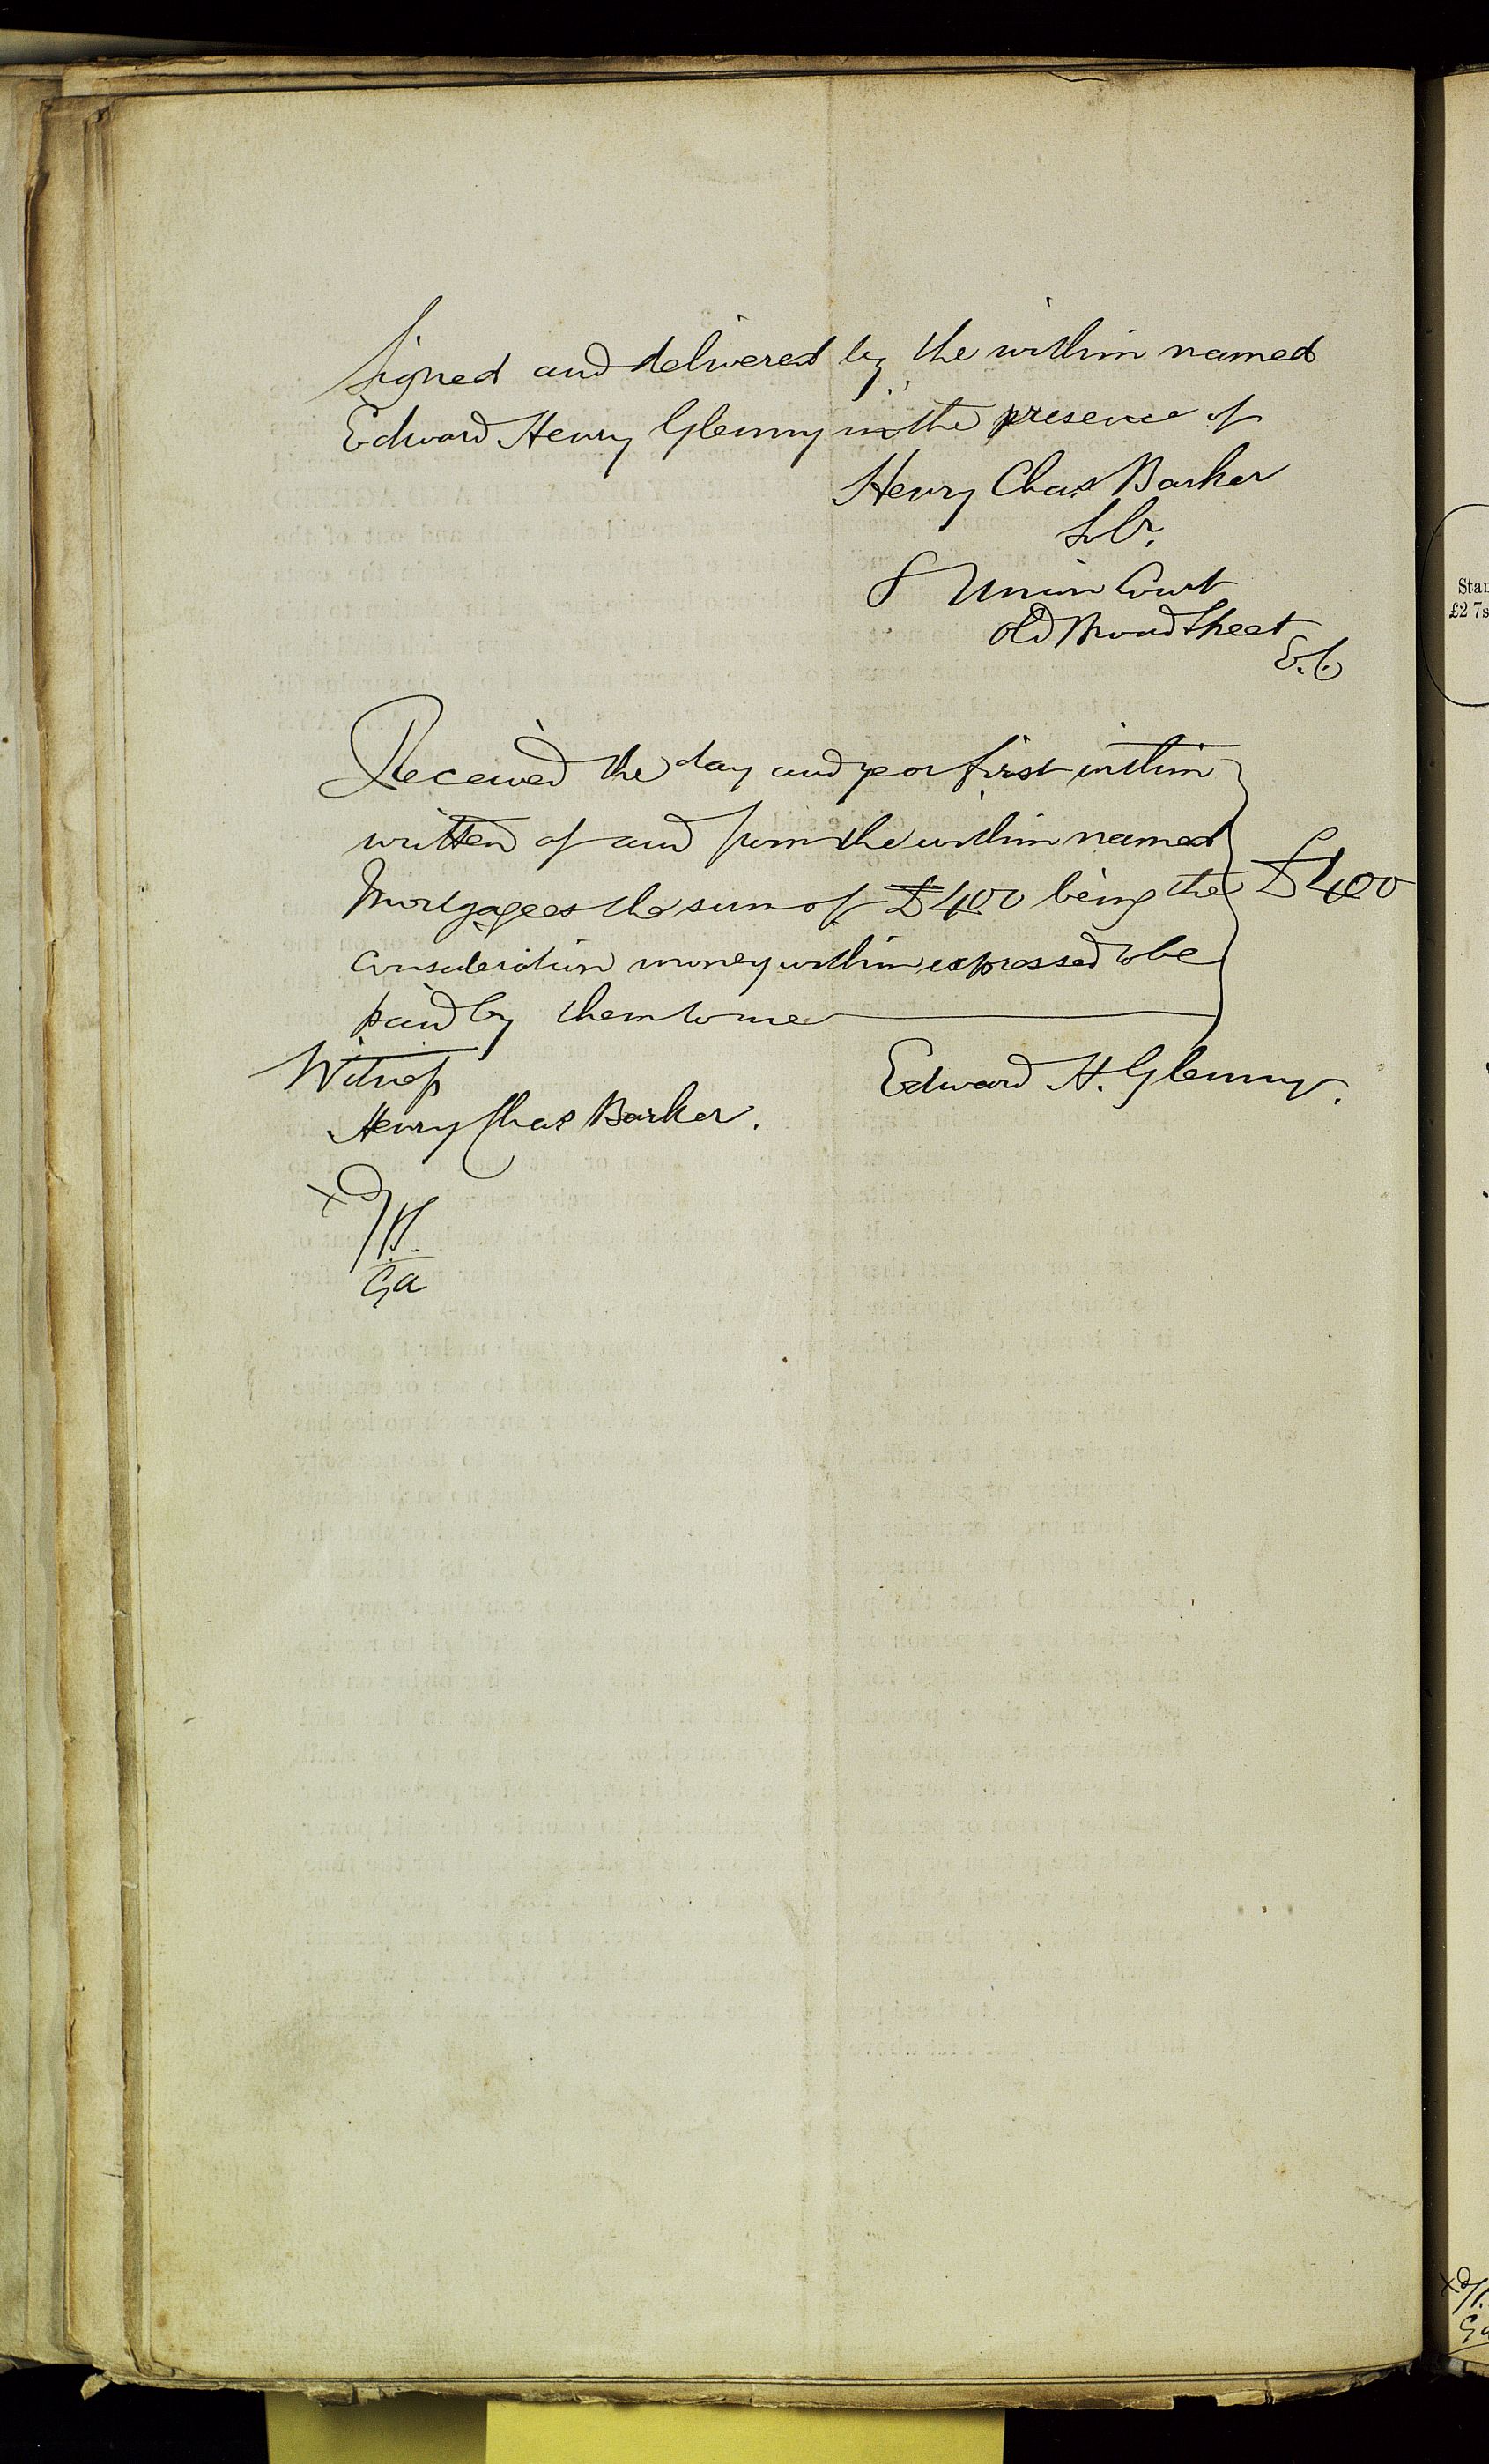 Signed and delivered by the within named
Edward Henry Glenny in the presence of
Henry Chas Barker
Solr.
8 Union Court
Old Broad Street
E.C.
Received the day and year first within
written of and from the within named
Mortgagees the sum of £400 being the
consideration money within expressed to be
paid by them to me
£400
Witness
Edward H. Glenny.
Henry Chas Barker.
Ga
Stan
£2 7s